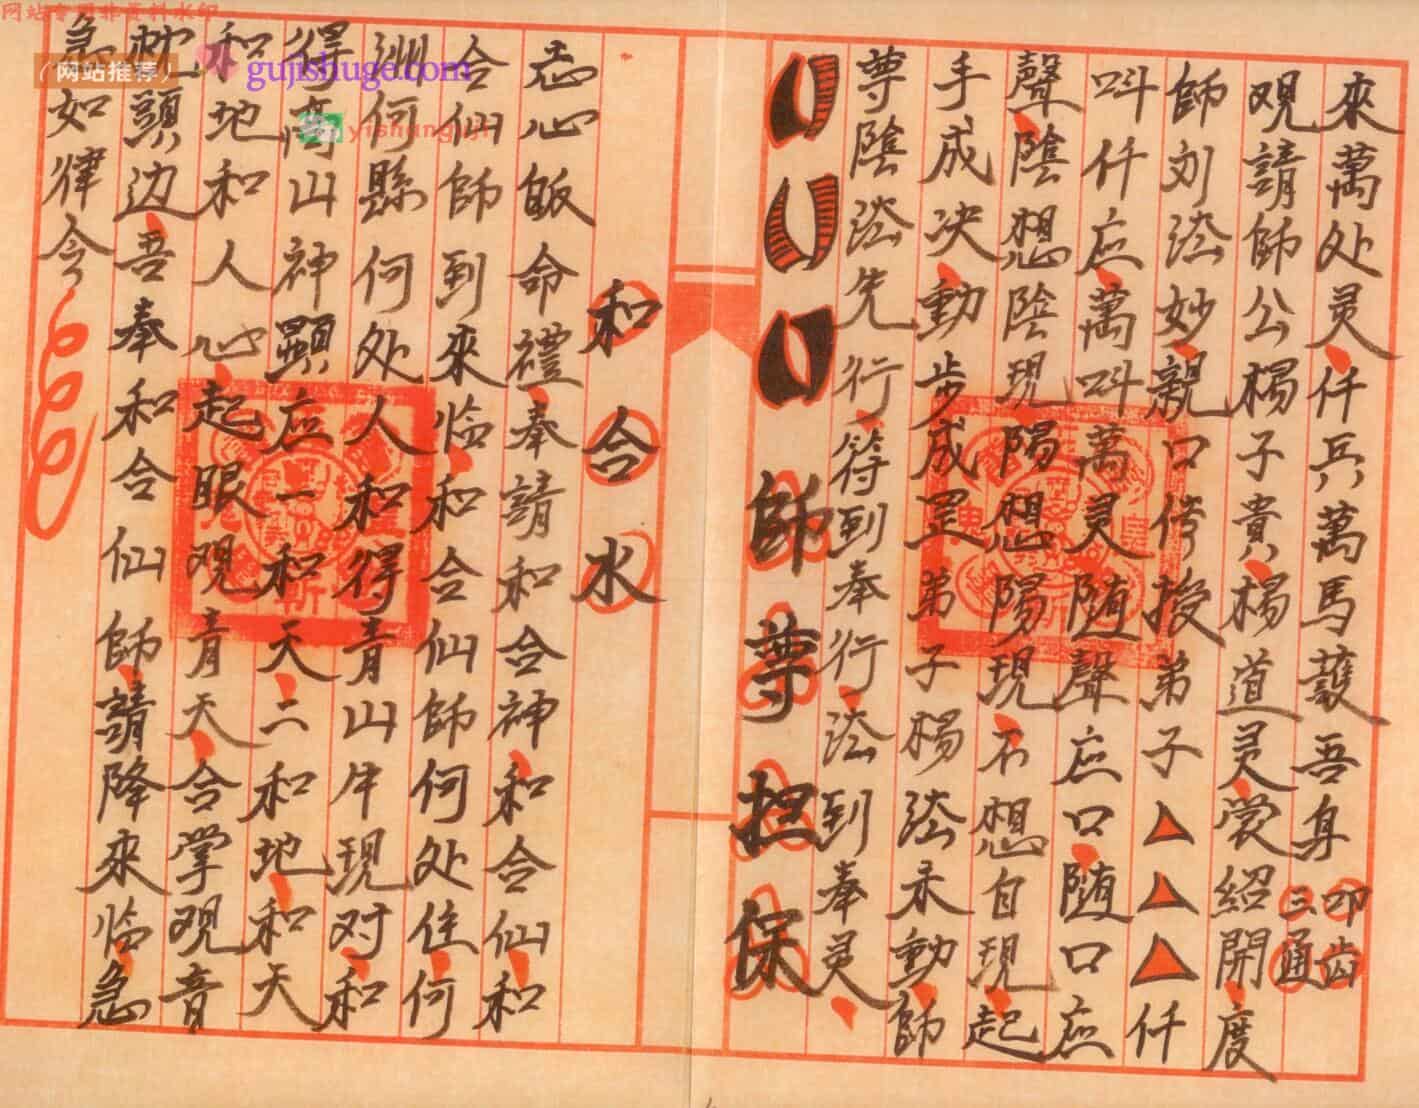 來萬处灵仟兵萬馬護吾身 叩齿三通
观請師公楊子貴楊道灵裳紹開度
師刘法妙親口传授弟子 仟
叫仟应萬叫萬灵随聲应口随口应
聲陰想陰現陽想陽現不想自現起
手成决動步成罡弟子楊法永動師
尊陰法先行符到奉行法到奉灵
師尊担保
和合水
志心皈命禮奉請和合神和合仙和
合仙師到來临和合仙師何处住何
洲何縣何处人和得青山牛現对和
得高山神顕应一和天二和地和天
和地和人心起眼观青天合掌观音
枕頭边吾奉和合仙師請降來临急
急如律令
网站专用非资料水印
（网站推荐）
gujishuge.com
yishunguji